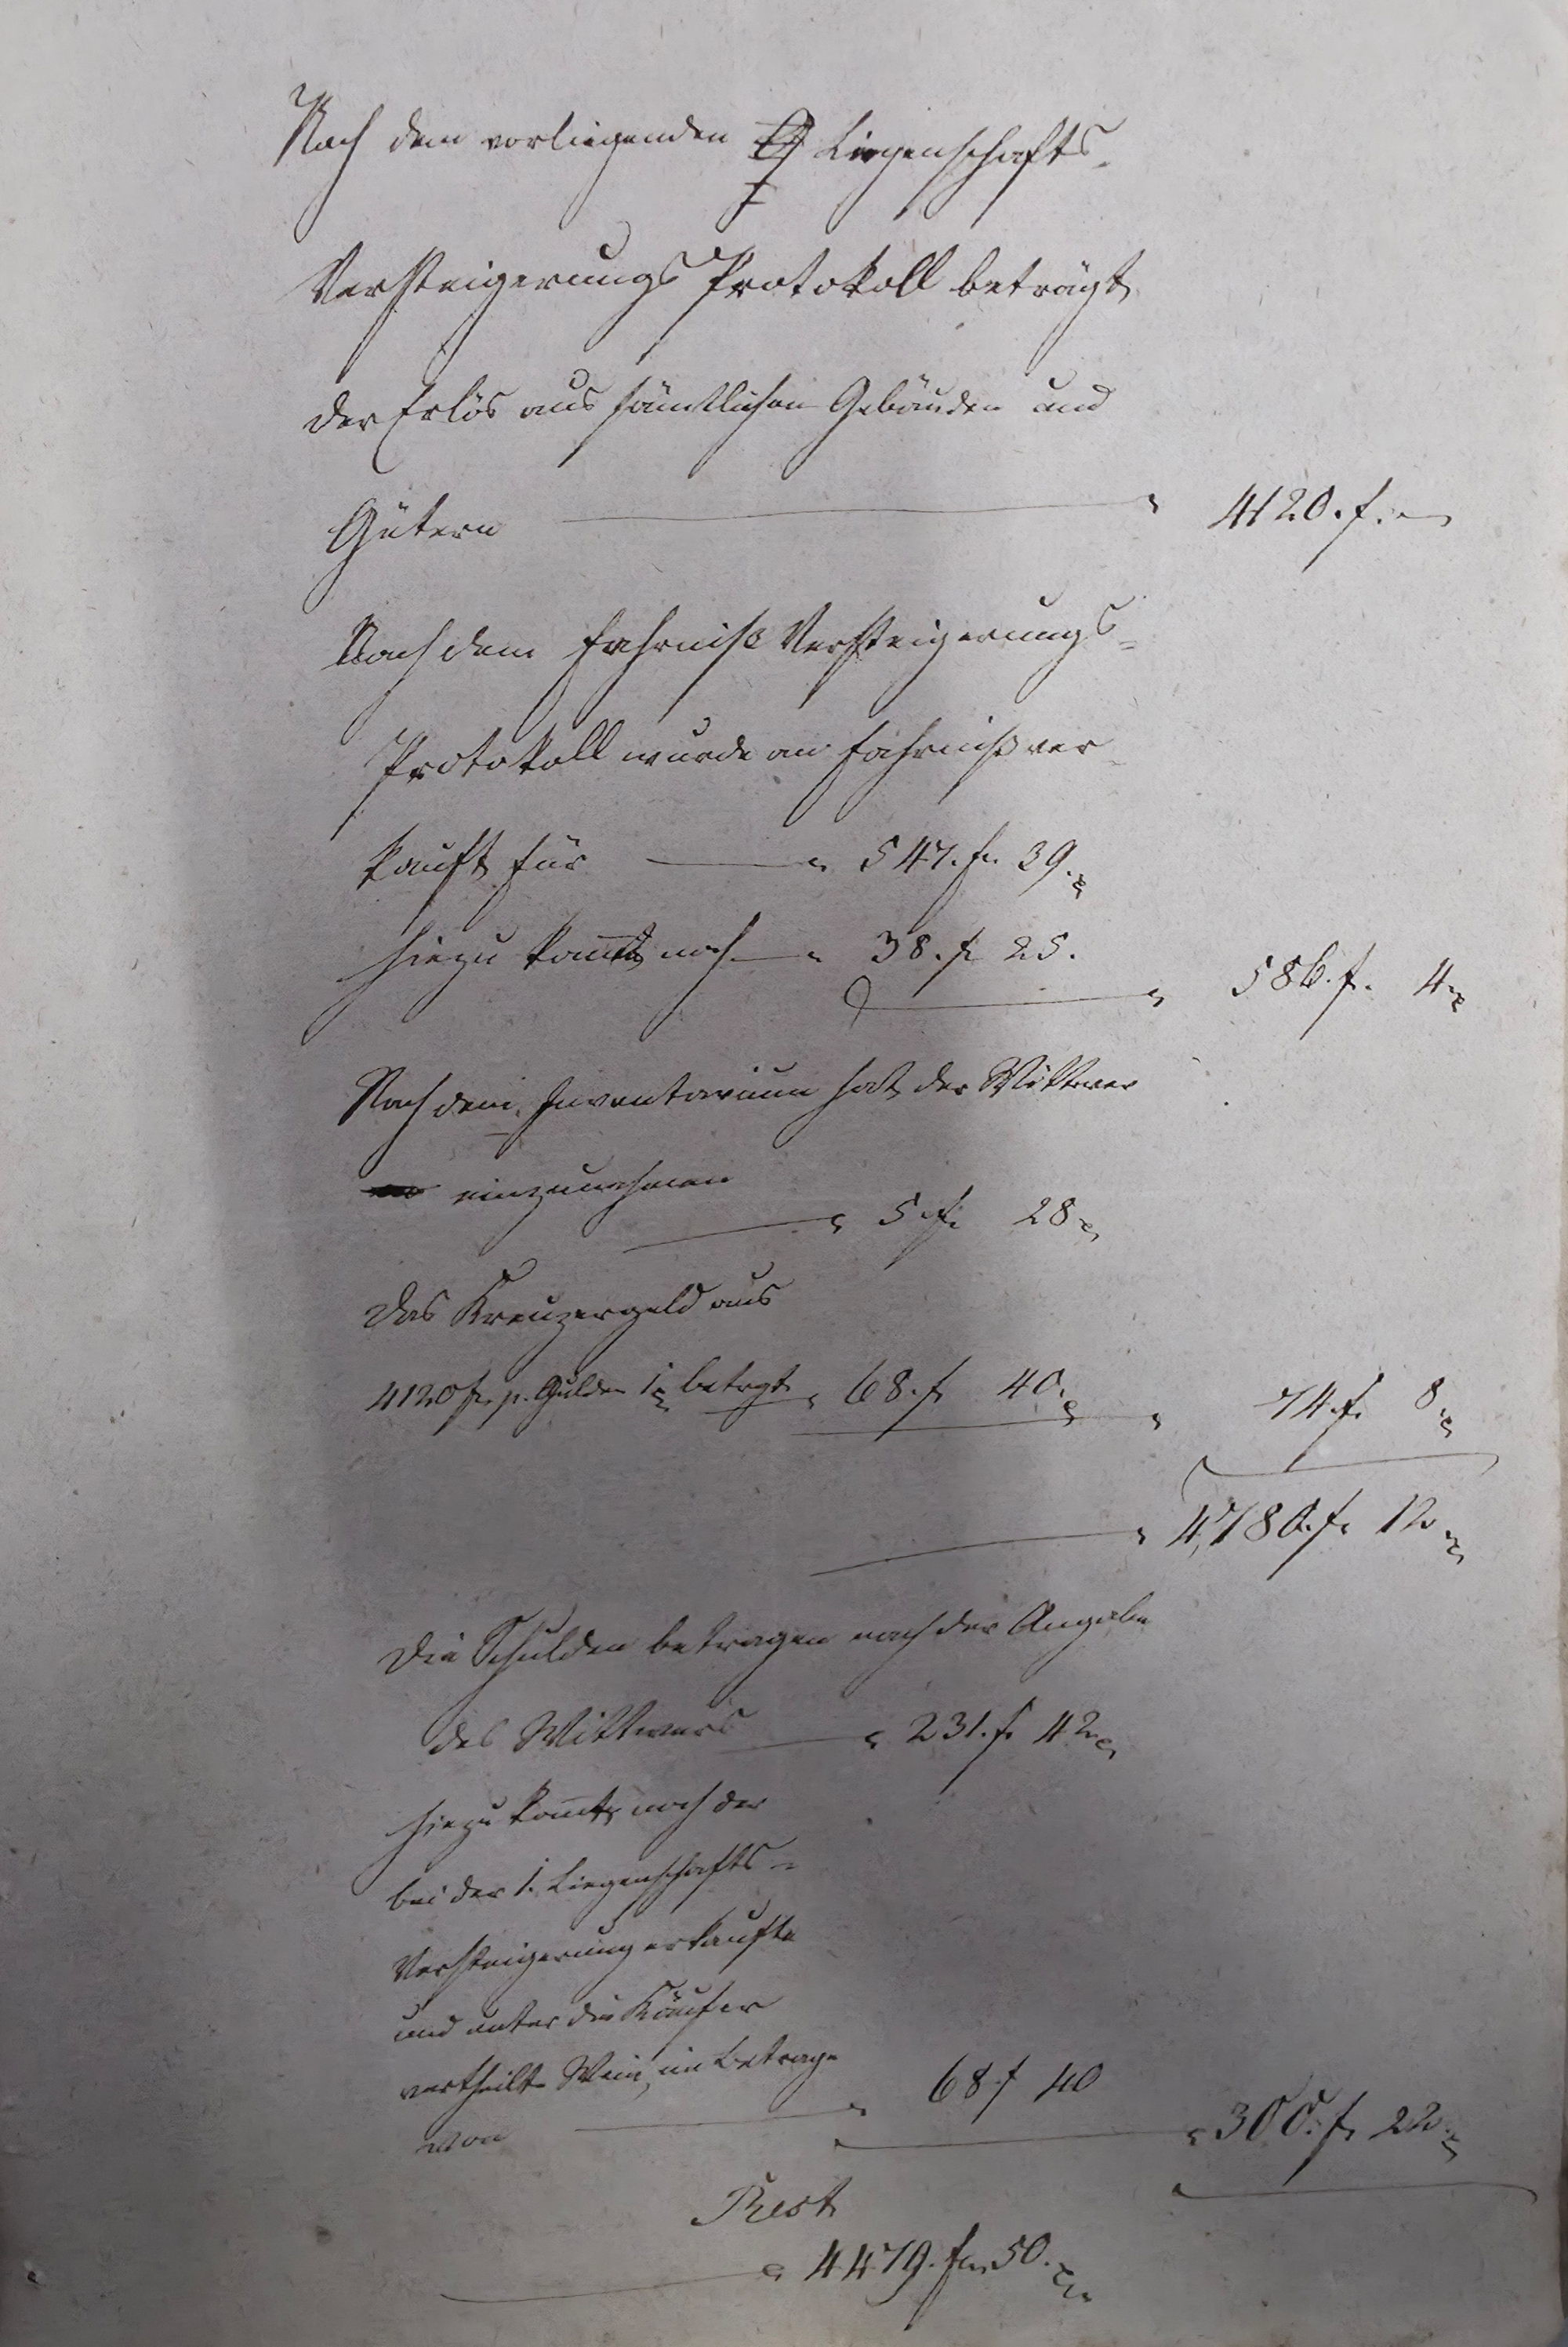 Nach dem vorliegenden Liegenschafts-
Versteigerungs Protokoll beträgt
der Erlös aus sämtlichen Gebäuden und
Gütern 4120. f. –
Nach dem Fahrniß Versteigerungs-
Protokoll wurde an Fahrniß ver-
kauft für 547. f. 39.
hiezu kom̄t noch 38. f 25.
586. f. 4
Nach dem Inventarium hat der Wittwer
einzunehmen
5 f. 28
Das Kreuzergeld aus
4120 f. p. Gulden 1 betrgt 68. f 40. 74 f. 8
4,780. f. 12
Die Schulden betragen nach der Angabe
des Wittwers 231. f. 42
hiezu kom̄t noch der
bei der 1. Liegenschafts-
Versteigerung erkaufte
und unter die Käufer
vertheilte Wein, im Betrage
von 68 f 40 300. f. 22
Rest
4479. f. 50.